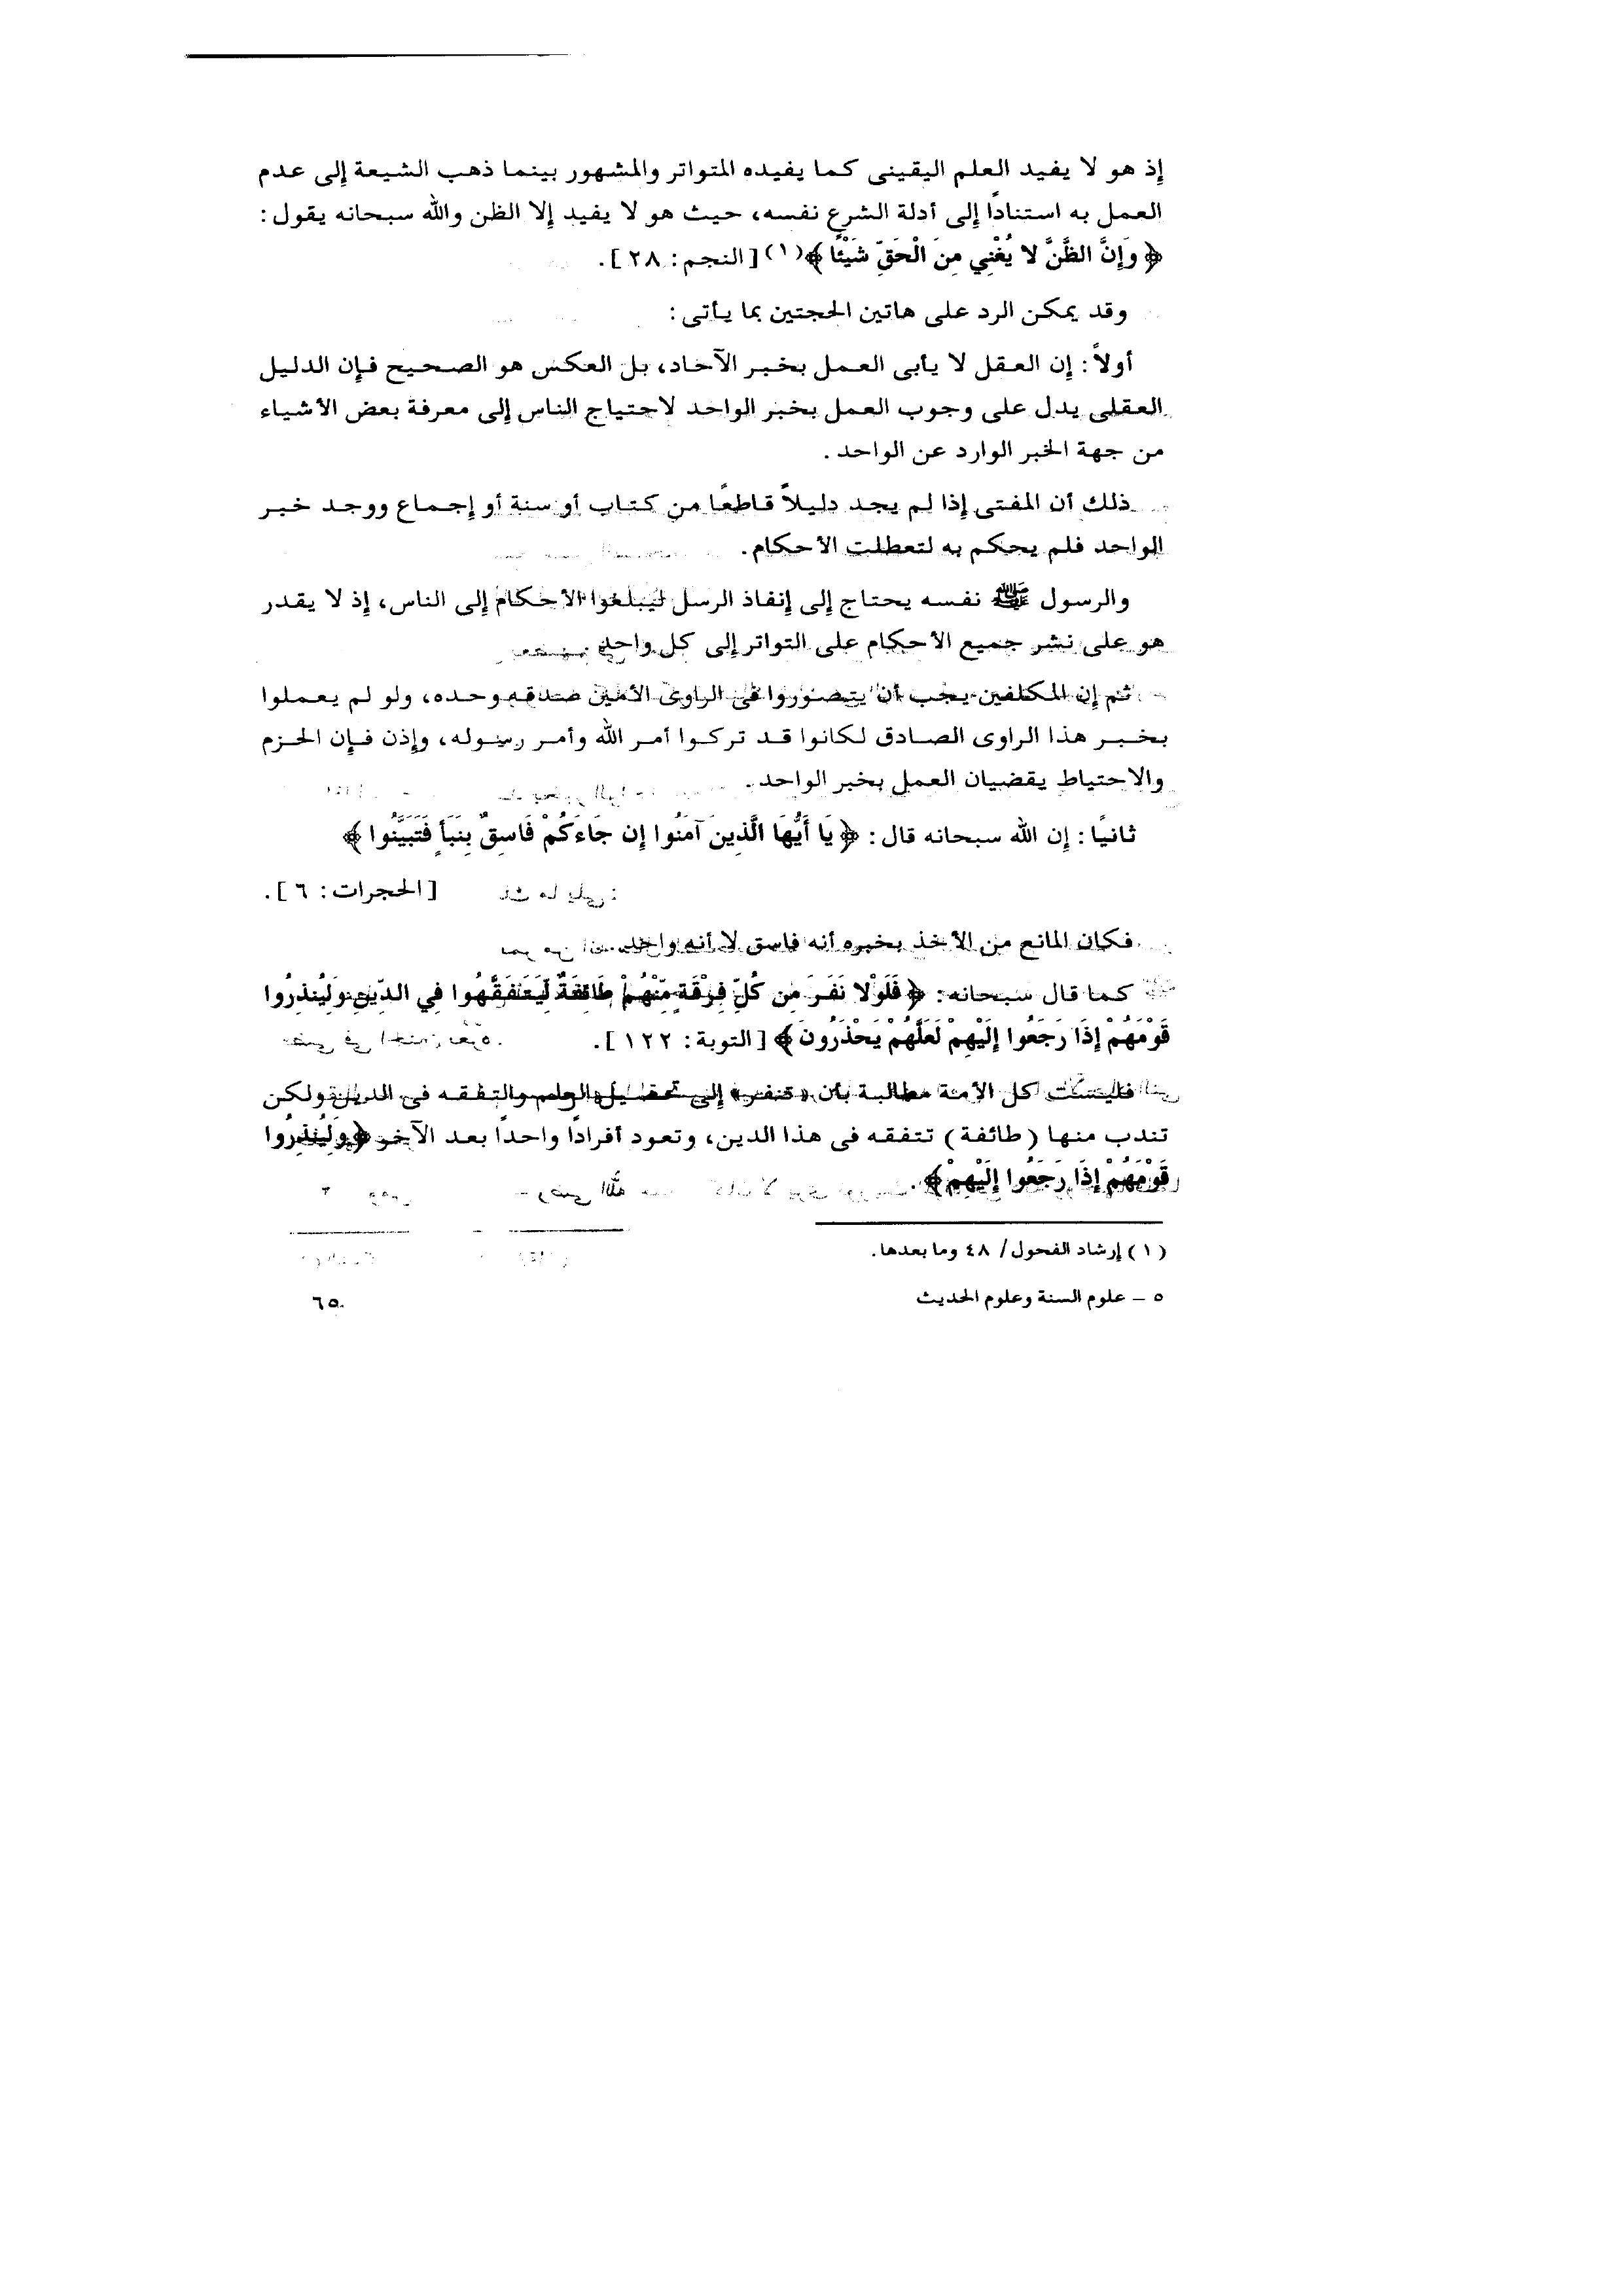 إذ هو لا يفيد العلم اليقينى كما يفيده المتواتر والمشهور بينما ذهب الشيعة إلى عدم
العمل به استنادًا إلى أدلة الشرع نفسه، حيث هو لا يفيد إلا الظن والله سبحانه يقول :
﴿ وَإِنَّ الظَّنَّ لا يُغْنِي مِنَ الْحَقِّ شَيْئًا ﴾(١) [ النجم : ٢٨ ] .
وقد يمكن الرد على هاتين الحجتين بما يأتى :
أولاً : إن العقل لا يأبى العمل بخبر الآحاد، بل العكس هو الصحيح فإن الدليل
العقلى يدل على وجوب العمل بخبر الواحد لاحتياج الناس إلى معرفة بعض الأشياء
من جهة الخبر الوارد عن الواحد .
ذلك أن المفتى إذا لم يجد دليلاً قاطعًا من كتاب أو سنة أو إجماع ووجد خبر
الواحد فلم يحكم به لتعطلت الأحكام .
والرسول ﷺ نفسه يحتاج إلى إنفاذ الرسل ليبلغوا الأحكام إلى الناس، إذ لا يقدر
هو على نشر جميع الأحكام على التواتر إلى كل واحد .
ثم إن المكلفين يجب أن يتصوروا فى الراوى الأمين صدقه وحده، ولو لم يعملوا
بخبر هذا الراوى الصادق لكانوا قد تركوا أمر الله وأمر رسوله، وإذن فإن الحزم
والاحتياط يقضيان العمل بخبر الواحد .
ثانيًا : إن الله سبحانه قال : ﴿ يَا أَيُّهَا الَّذِينَ آمَنُوا إِن جَاءَكُمْ فَاسِقٌ بِنَبَأٍ فَتَبَيَّنُوا ﴾
[ الحجرات : ٦ ] .
فكان المانع من الأخذ بخبره أنه فاسق لا أنه واحد .
كما قال سبحانه : ﴿ فَلَوْلا نَفَرَ مِن كُلِّ فِرْقَةٍ مِّنْهُمْ طَائِفَةٌ لِّيَتَفَقَّهُوا فِي الدِّينِ وَلِيُنذِرُوا
قَوْمَهُمْ إِذَا رَجَعُوا إِلَيْهِمْ لَعَلَّهُمْ يَحْذَرُونَ ﴾ [ التوبة : ١٢٢ ] .
فليست كل الأمة مطالبة بأن «تنفر» إلى تحصيل العلم والتفقه فى الدين ولكن
تندب منها ( طائفة ) تتفقه فى هذا الدين، وتعود أفرادًا واحدًا بعد الآخر ﴿ وَلِيُنذِرُوا
قَوْمَهُمْ إِذَا رَجَعُوا إِلَيْهِمْ ﴾ .
( ١ ) إرشاد الفحول / ٤٨ وما بعدها .
٥ – علوم السنة وعلوم الحديث
٦٥